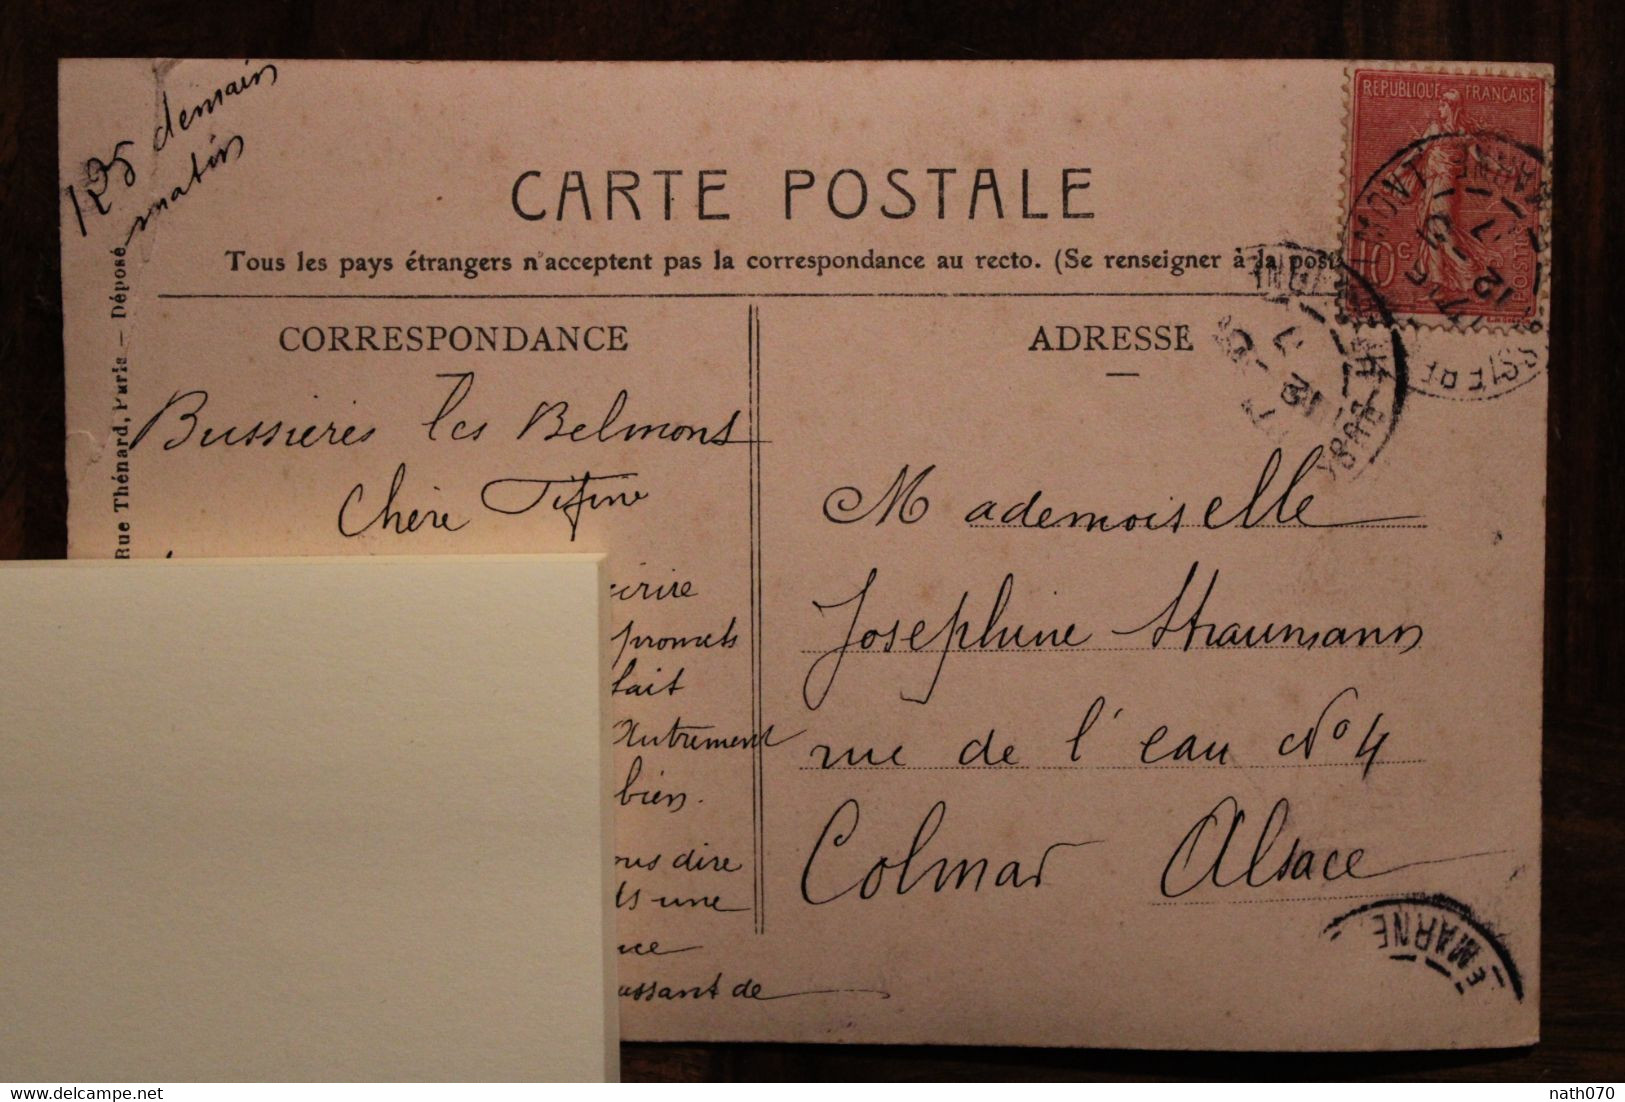 125 demain
matin
CARTE POSTALE
Tous les pays étrangers n'acceptent pas la correspondance au recto. (Se renseigner à la poste
Rue Thénard, Paris — Déposé
CORRESPONDANCE
Bussières les Belmont
Chère Fifine
écrire
promets
fait
Autrement
bien.
ous dire
ts une
nce
ussant de
ADRESSE
Mademoiselle
Josephine Straumann
rue de l'eau No 4
Colmar Alsace
REPUBLIQUE FRANÇAISE
10c
POSTES
MARNE
nath070